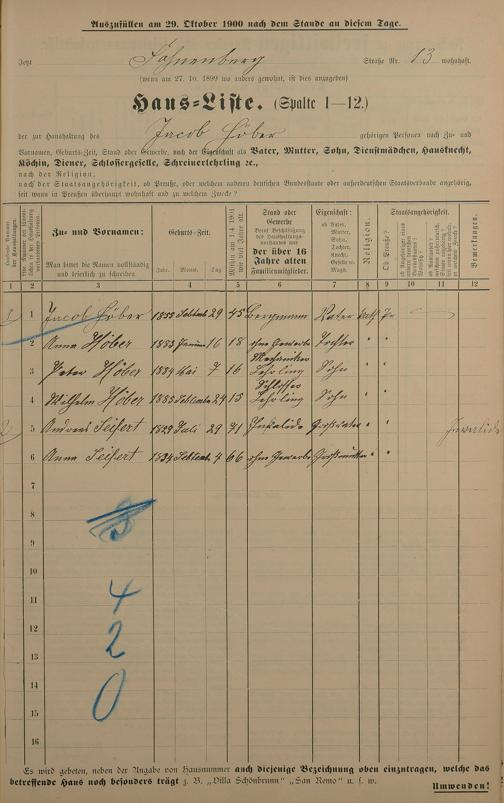 Auszufüllen am 29. Oktober 1900 nach dem Stande an diesem Tage.
Jetzt Johnenberg Straße Nr. 13 wohnhaft.
(wenn am 27. 10. 1899 wo anders gewohnt, ist dies anzugeben)
Haus-Liste. (Spalte 1—12.)
der zur Haushaltung des Jacob Höber gehörigen Personen nach Zu- und
Vornamen, Geburts-Zeit, Stand oder Gewerbe, nach der Eigenschaft als Vater, Mutter, Sohn, Dienstmädchen, Hausknecht,
Köchin, Diener, Schlossergeselle, Schreinerlehrling ꝛc.,
nach der Religion,
nach der Staatsangehörigkeit, ob Preuße, oder welchem anderen deutschen Bundesstaate oder außerdeutschen Staatsverbande angehörig,
seit wann in Preußen überhaupt wohnhaft und zu welchem Zwecke?
Zu- und Vornamen:
Man bittet die Namen vollständig und leserlich zu schreiben.
Geburts-Zeit.
Jahr. Monat. Tag
Mithin am 1.4. 1901 wie viel Jahre alt.
Stand oder Gewerbe
der über 16 Jahre alten Familienmitglieder.
Eigenschaft:
ob Vater, Mutter, Sohn, Tochter, Knecht, Geselle o. Magd.
Religion.
Ob Preuße?
Staatsangehörigkeit.
Bemerkungen.
1 2 3 4 5 6 7 8 9 10 11 12
1 Jacob Höber 1855 Septemb 29 45 Bergmann Vater kath Pr
2 Anna Höber 1883 Januar 16 18 ohne Gewerbe Tochter " "
3 Peter Höber 1884 Mai 7 16 Mechaniker Lehrling Sohn " "
4 Wilhelm Höber 1885 Septemb 29 15 Schlosser Lehrling Sohn " "
5 Andreas Seifert 1829 Juli 29 71 Invalide Großvater " " Invalide
6 Anna Seifert 1834 Septemb. 4 66 ohne Gewerbe Großmutter " "
7
8
9
10
11
4
12
2
13
14
0
15
16
Es wird gebeten, neben der Angabe von Hausnummer auch diejenige Bezeichnung oben einzutragen, welche das
betreffende Haus noch besonders trägt z. B. „Villa Schönbrunn" „San Remo" u. s. w.
Umwenden!